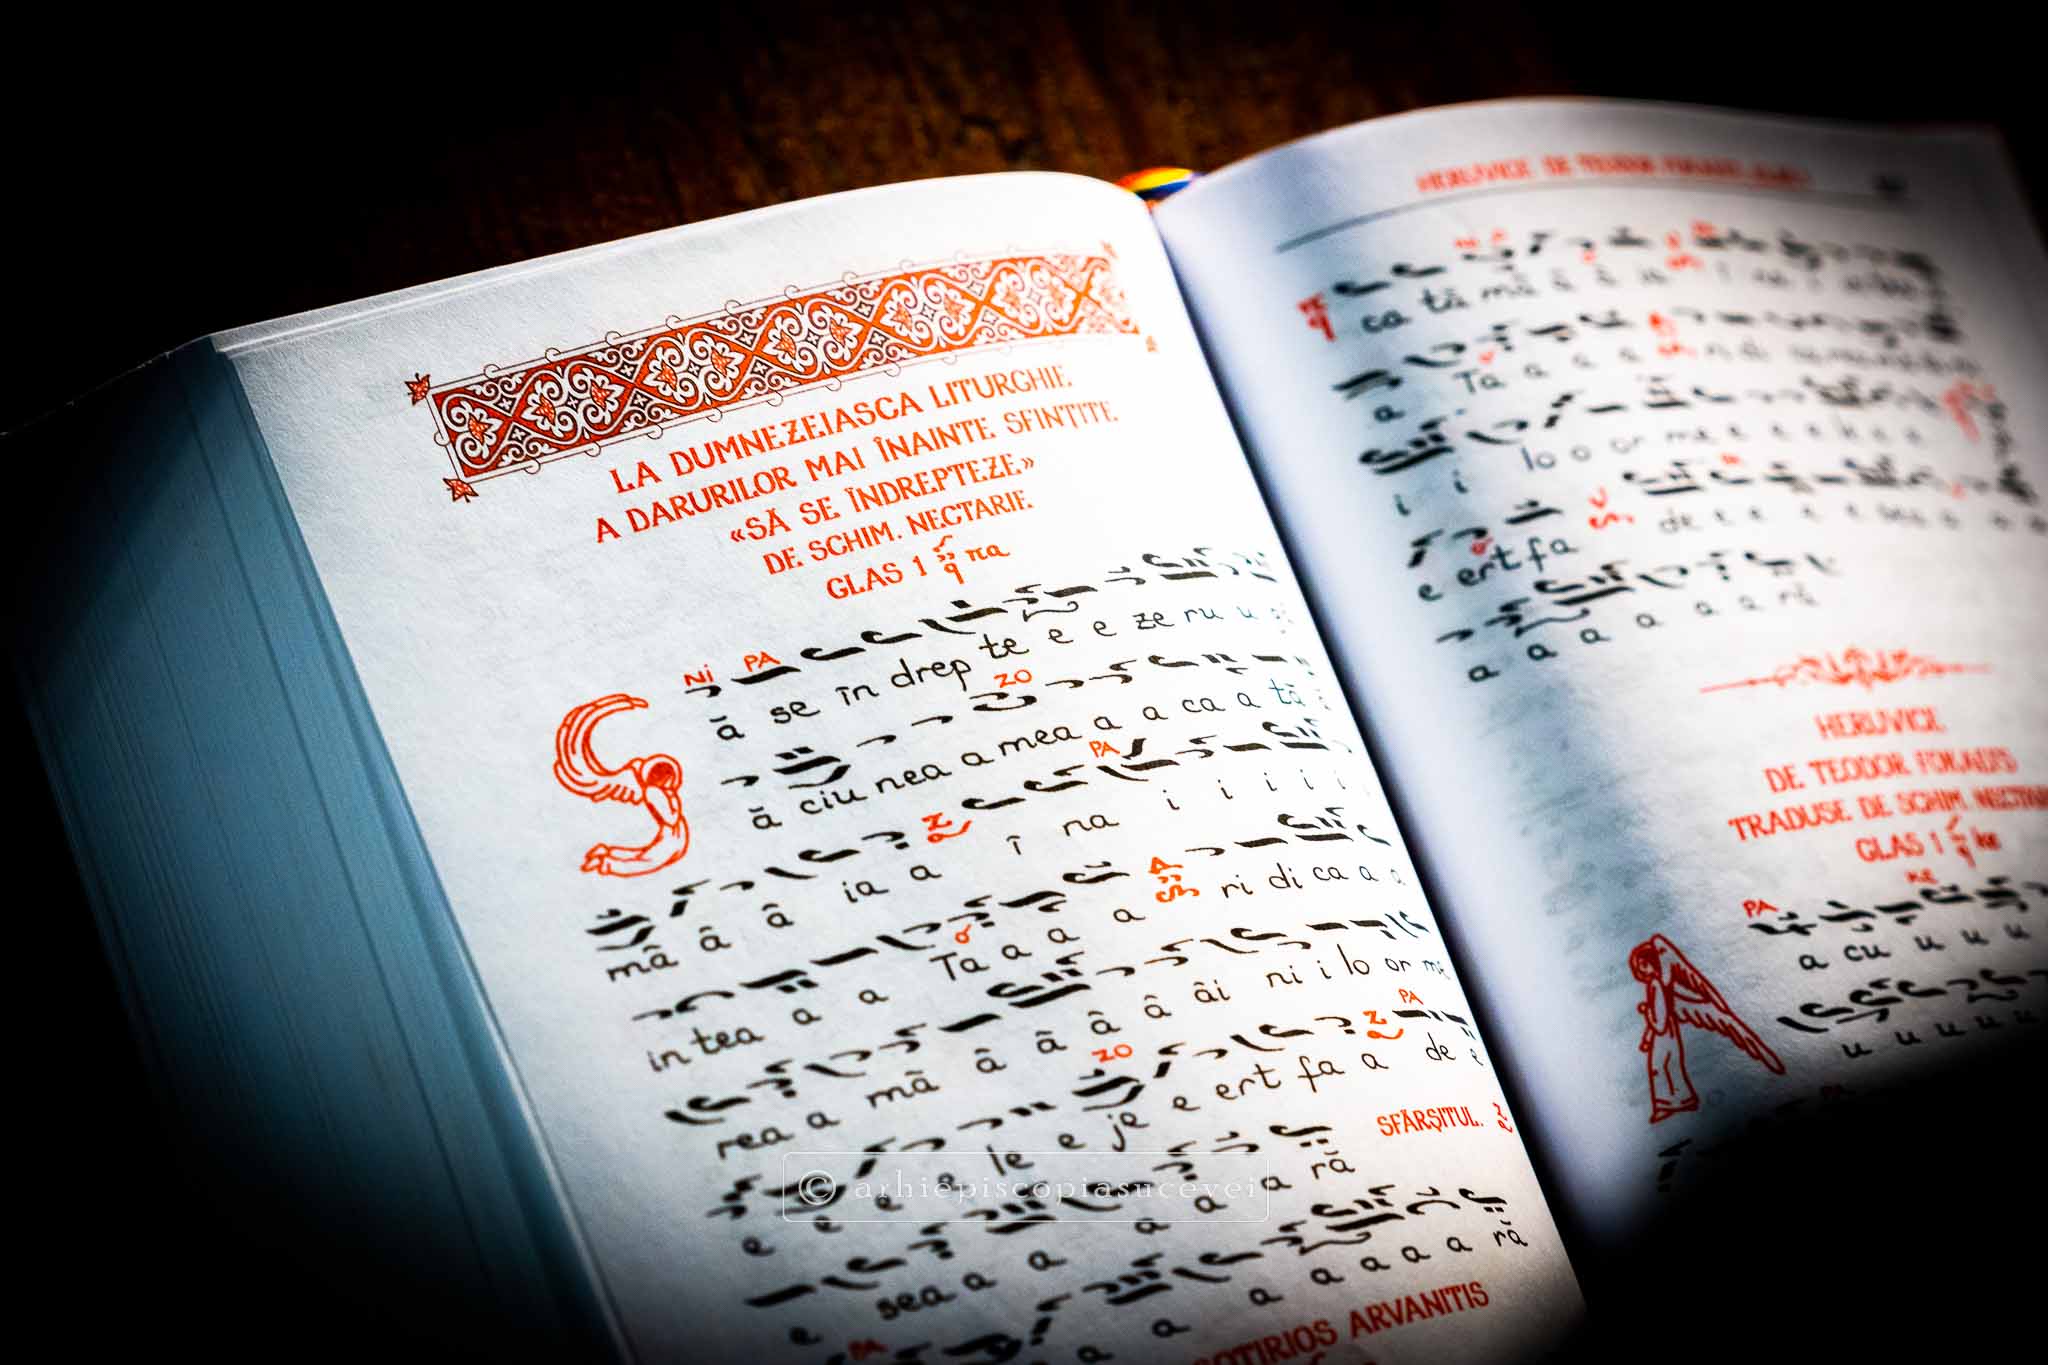 LA DUMNEZEIASCA LITURGHIE
A DARURILOR MAI ÎNAINTE SFINȚITE
«SĂ SE ÎNDREPTEZE»
DE SCHIM. NECTARIE.
GLAS 1 πα
NI PA
S ă se în drep te e e ze ru u
ZO
ă ciu nea a mea a a ca a tă
PA
mâ â â ia a î na i i i i i
in tea a a Ta a a a ri di ca a a
rea a mâ â â â â âi ni i lo or me
ZO PA
e e e le e je e ert fa a de e
SFÂRȘITUL.
sea a a a a a ră
e a a a a a a ră
PA
SOTIRIOS ARVANITIS
© arhiepiscopiasucevei
ca tă mâ â â
a Ta a a a
i i lo o or me e e e
e ert fa de e e e e
a a a a a a ră
HERUVICE
DE TEODOR FOKAEFS
TRADUSE DE SCHIM. NECTARIE
GLAS 1 κε
PA KE
A a cu u u u
u u u u u